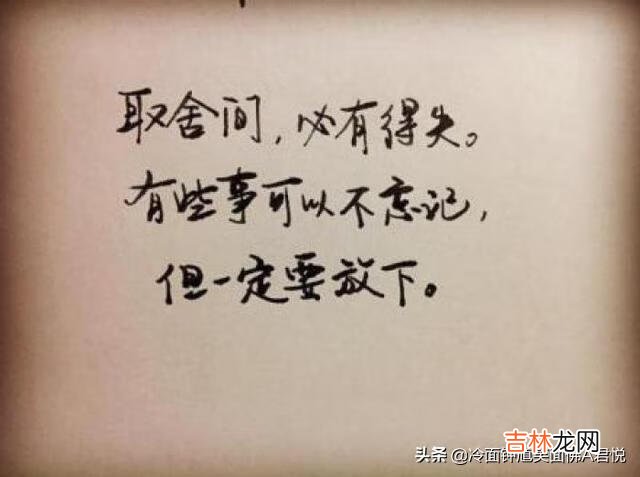 取舍间，必有得失。
有些事可以不忘记，
但一定要放下。
吉林龙网
头条 @冷面钟馗笑面佛A君悦